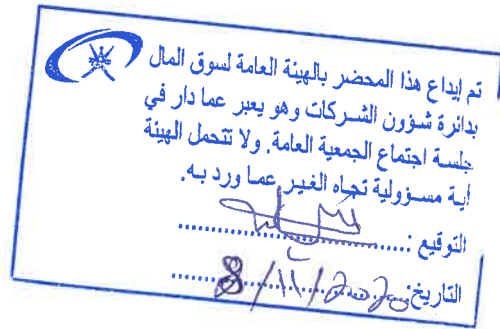 تم إيداع هذا المحضر بالهيئة العامة لسوق المال
بدائرة شؤون الشركات وهو يعبر عما دار في
جلسة اجتماع الجمعية العامة. ولا تتحمل الهيئة
أية مسؤولية تجاه الغير عما ورد به.
التوقيع :
التاريخ: 8/11/2020